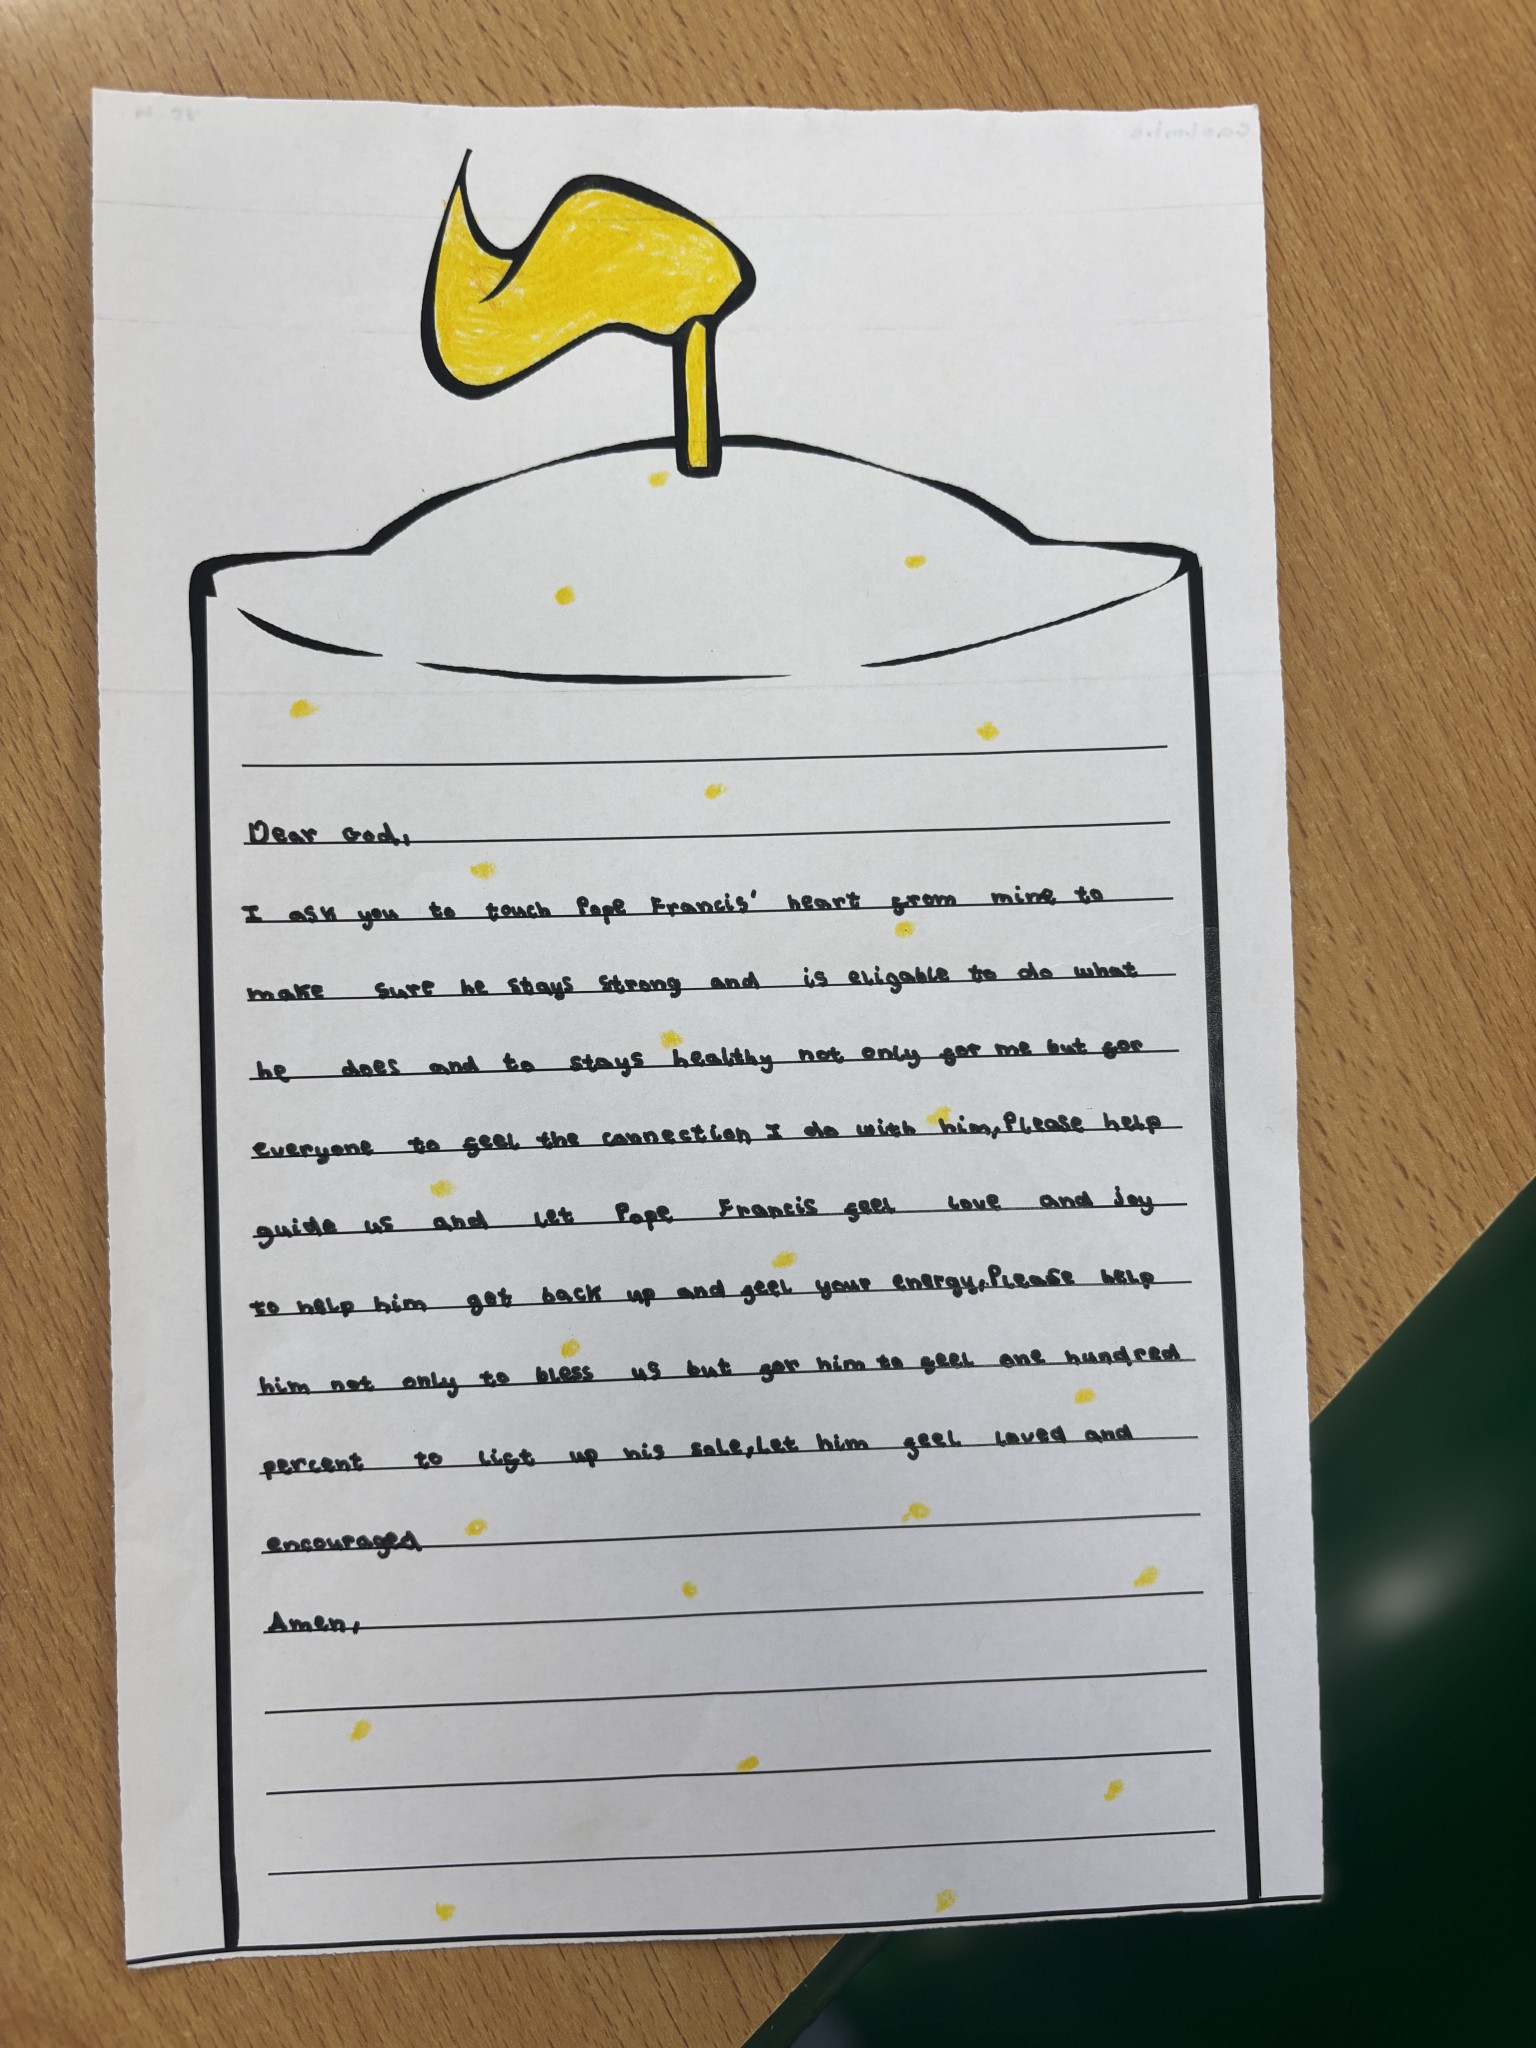 Dear God,
I ask you to touch Pope Francis' heart from mine to
make sure he stays strong and is eligable to do what
he does and to stays healthy not only for me but for
everyone to feel the connection I do with him, Please help
guide us and let Pope Francis feel love and joy
to help him get back up and feel your energy, Please help
him not only to bless us but for him to feel one hundred
percent to lift up his sole, Let him feel loved and
encouraged
Amen,